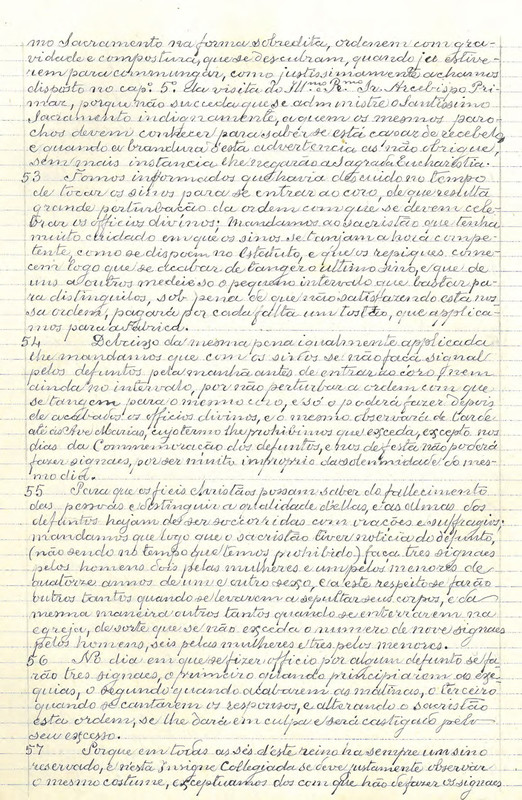 mo Sacramento na forma sobredita, ordenem com gra-
vidade e compostura, que se descubram, quando ja estive-
rem para commungar, como justissimamente achamos
disposto no cap. 5º da visita do Ill.mo e R.mo Sr. Arcebispo Pri-
maz, porque não succeda que se administre o Santissimo
Sacramento indignamente, a quem os mesmos paro-
chos devem conhecer para saber se está capaz de recebel-o
e quando a brandura d'esta advertencia as não obrigue,
sem mais instancia lhe negarão a Sagrada Eucharistia.
53 Fomos informados que havia descuido no tempo
de tocar os sinos para se entrar ao coro, de que resulta
grande perturbação da ordem com que se devem cele-
brar os officios divinos; mandamos ao sacristão que tenha
muito cuidado em que os sinos se tanjam a hora compe-
tente, como se dispoem no Estatuto, e que os repiques come-
cem logo que se acabar de tanger o ultimo sino, e que de
uns a outros medeie só o pequeno intervalo que bastar pa-
ra distinguil-os, sob pena de que não satisfazendo esta nos-
sa ordem, pagará por cada falta um tostão, que applica-
mos para a Fabrica.
54 Debaixo da mesma pena igualmente applicada
lhe mandamos que com os sinos se não faça signal
pelos defuntos pela manhã antes de entrar ao coro, nem
ainda no intervalo, por não perturbar a ordem com que
se tangem para o mesmo coro, e só o poderá fazer depois
de acabados os officios divinos, e o mesmo observará de tarde
até ás Ave Marias, cujo termo lhe prohibimos que exceda, excepto nos
dias da Commemoração dos defuntos, e nos de festa não poderá
fazer signaes, por ser muito improprio da solemnidade do mes-
mo dia.
55 Para que os fieis christãos possam saber do fallecimento
das pessoas e distinguir a qualidade d'ellas, e as almas dos
defuntos hajam de ser soccorridas com orações e suffragios;
mandamos que logo que o sacristão tiver noticia do defunto,
(não sendo no tempo que temos prohibido) faça tres signaes
pelos homens, dois pelas mulheres e um pelos menores de
quatorze annos de um e outro sexo, e a este respeito se farão
outros tantos quando se levarem a sepultar seus corpos, e da
mesma maneira outros tantos quando se enterrarem na
egreja, de sorte que se não exceda o numero de nove signaes
pelos homens, seis pelas mulheres e tres pelos menores.
56 No dia em que se fizer officio por algum defunto se fa-
rão tres signaes, o primeiro quando principiarem as exe-
quias, o segundo quando acabarem as matinas, o terceiro
quando se cantarem os responsos, e alterando o sacristão
esta ordem, se lhe dará em culpa e será castigado pelo
seu excesso.
57 Porque em todas as sés d'este reino ha sempre um sino
reservado, e n'esta insigne Collegiada se deve justamente observar
o mesmo costume, exceptuamos dos com que hão de fazer os signaes